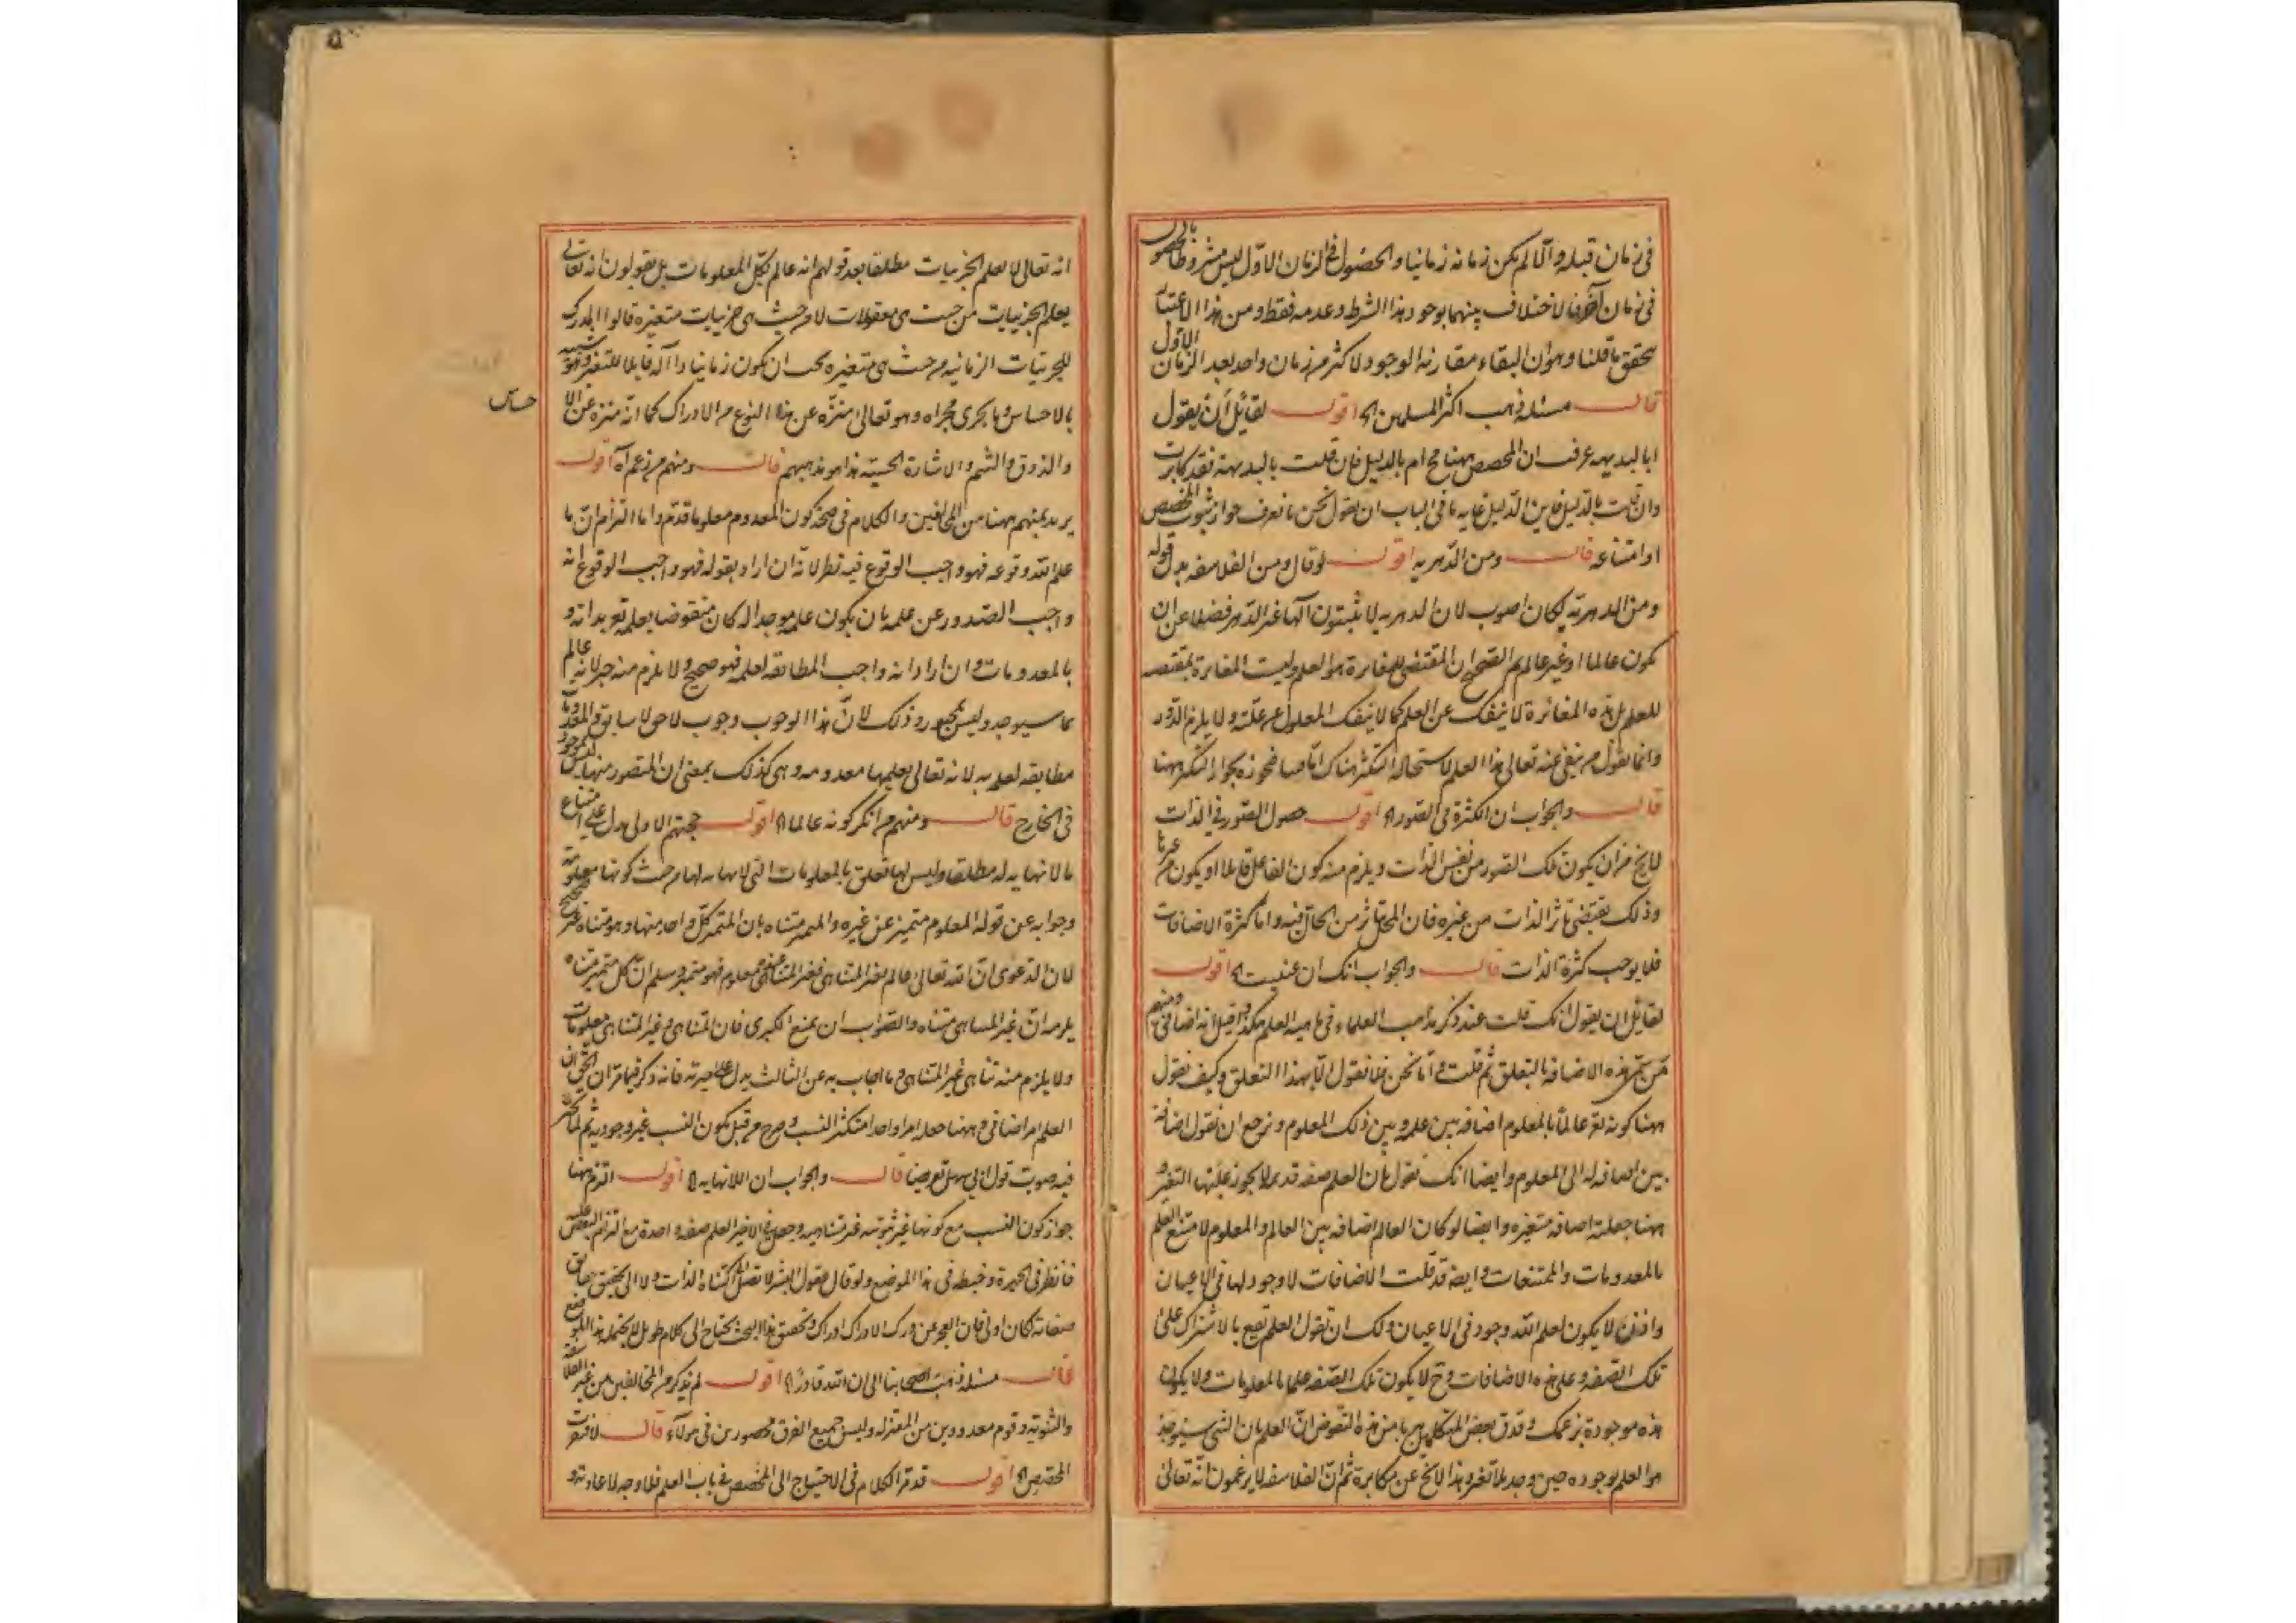 في زمان قبله والا لم يكن زمانه زمانيا والحصول في الزمان الاول ليس مشروطا بالحصول
في زمان آخر فالاختلاف بينهما بوجود هذا الشرط وعدمه فقط ومن هذا الاعتبار
يتحقق ما قلنا وهو ان البقاء مقارنة الوجود لاكثر من زمان واحد بعد الزمان الاول
قال مسئلة ذهب اكثر المسلمين الخ اقول لقائل ان يقول
ابالبديهه عرفت ان المخصص ههنا ام بالدليل فان قلت بالبديهة فقد كابرت
وان قلت بالدليل فاين الدليل غاية ما في الباب ان يقول نحن ما نعرف جواز ثبوت المخصص
او امتناعه قال ومن الدهرية اقول لو قال ومن الفلاسفه بدل قوله
ومن الدهرية لكان اصوب لان الدهريه لا يثبتون آلها غير الدهر فضلا عن ان
يكون عالما او غير عالم ثم الصحيح ان المقتضى للمغايرة هو العلم وليست المغايرة بمقتضيه
للعلم بل هذه المغائرة لا ينفك عن العلم كما لا ينفك المعلول عن علته ولا يلزم الدور
وانما يقول من ينفي عنه تعالى هذا العلم لاستحالة التكثر هناك اما فينا فنجوزه بجواز التكثر ههنا
قال والجواب ان الكثرة في الصور الخ اقول حصول الصور في الذات
لا يخ من ان يكون تلك الصور من نفس الذات ويلزم منه كون الفاعل قابلا او يكون من غيرها
وذلك يقتضي تاثر الذات من غيره فان المحل يتاثر من الحال فيه واما كثرة الاضافات
فلا يوجب كثرة الذات قال والجواب انك ان عنيت الخ اقول
لقائل ان يقول انك قلت عند ذكر مذاهب العلماء في ماهية العلم هكذا وقيل انه اضافي ومنهم
من سمى هذه الاضافه بالتعلق ثم قلت واما نحن فلا نقول الا بهذا التعلق وكيف تقول
ههنا كونه تع عالما بالمعلوم اضافه بين علمه وبين ذلك المعلوم ويرجع ان نقول اضافة
بين اضافه له الى المعلوم وايضا انك تقول بان العلم صفه قديمه لا يجوز عليها التغير و
ههنا جعلته اضافه متغيره وايضا لو كان العلم اضافه بين العالم والمعلوم لامتنع العلم
بالمعدومات والممتنعات وايضه قد قلت الاضافات لا وجود لها في الاعيان
واذن لا يكون لعلم الله وجود في الاعيان ولك ان تقول العلم تقع بالاشتراك على
تلك الصفه وعلى هذه الاضافات وح لا يكون تلك الصفه علما بالمعلومات ولا يكون
هذه موجودة بزعمك وقد فر بعض المتكلمين من هذه النقوض ان العلم بان الشي سيوجد
هو العلم بوجوده حين وجد بلا تغير وهذا لا يخ عن مكابرة ثم ان الفلاسفه لا يزعمون انه تعالى
انه تعالى لا يعلم الجزئيات مطلقا بعد قولهم انه عالم بكل المعلومات بل يقولون انه تعالى
يعلم الجزئيات من حيث هي معقولات لا من حيث هي جزئيات متغيره قالوا المدرك
للجزئيات الزمانيه من حيث هي متغيره يجب ان يكون زمانيا ذا آله قابلا للتغير شبيه
بالاحساس وما يجري مجراه وهو تعالى منزه عن هذا النوع من الادراك كما انه منزه عن الا
حساس
والذوق والشم والاشارة الحسية هذا هو مذهبهم قال ومنهم من زعم اه اقول
يريد بمنهم ههنا من المخالفين والكلام في صحة كون المعدوم معلوما قد تقدم واما التزام ان ما
علم الله وقوعه فهو واجب الوقوع فيه نظر لانه ان اراد بقوله فهو واجب الوقوع انه
واجب الصدور عن علمه بان يكون علمه موجدا له كان منقوضا بعلمه تع بذاته و
بالمعدومات وان اراد انه واجب المطابقه لعلمه فهو صحيح ولا يلزم منه جبر لانه عالم
بما سيوجد وليس بمجبور وذلك لان هذا الوجوب وجوب لاحق لا سابق والمعدومات
مطابقه لعلمه به لانه تعالى يعلمها معدومه وهي كذلك بمعنى ان المتصور منها ليس بموجود
في الخارج قال ومنهم من انكر كونه عالما الخ اقول حجتهم الاولى تدل على امتناع
ما لا نهاية له مطلقا وليس لها تعلق بالمعلومات التي لا نهايه لها من حيث كونها معلومة
وجوابه عن قوله المعلوم متميز عن غيره والمتميز متناه بان المتميز كل واحد منها وهو متناه غير صحيح
لان الدعوى ان الله تعالى عالم بغير المتناهي فغير المتناهي عنده معلوم فهو متميز وسلم ان كل متميز متناه
يلزمه ان غير المتناهي متناه والصواب ان يمنع الكبرى فان المتناهي وغير المتناهي معلومات
ولا يلزم منه تناهي غير المتناهي وما اجاب به عن الثالث يدل على حيرته فانه ذكر فيما مر ان الحق ان
العلم امر اضافي وههنا جعله امرا واحدا متكثر النسب وصرح من قبل بكون النسب غير وجوديه ثم
فيه صوبت قول ابي سهل تعريضا قال والجواب ان اللانهايه الخ اقول التزم ههنا
جواز كون النسب مع كونها غير ثبوتيه غير متناهيه وجعل في الاخير العلم صفه واحدة مع التزام البعض عليه
فانظر في الحيرة وخبطه في هذا الموضع ولو قال عقول البشر لا تصل الى اكتناه الذات ولا الى تحقيق حقايق
صفاته لكان اولى فان العجز عن درك الادراك ادراك وتحقيق هذا البحث يحتاج الى كلام طويل لا يحتمله هذا الموضع
قال مسئلة ذهب اصحابنا الى ان الله قادر الخ اقول لم يذكر من المخالفين من غير الفلاسفة
والثنويه وقوم معدودين من المعتزله وليس جميع الفرق محصورين في هولآء قال لافتقرت
المخصص الخ اقول قد مر الكلام في الاحتياج الى المخصص في باب العلم فلا وجه لاعادته و